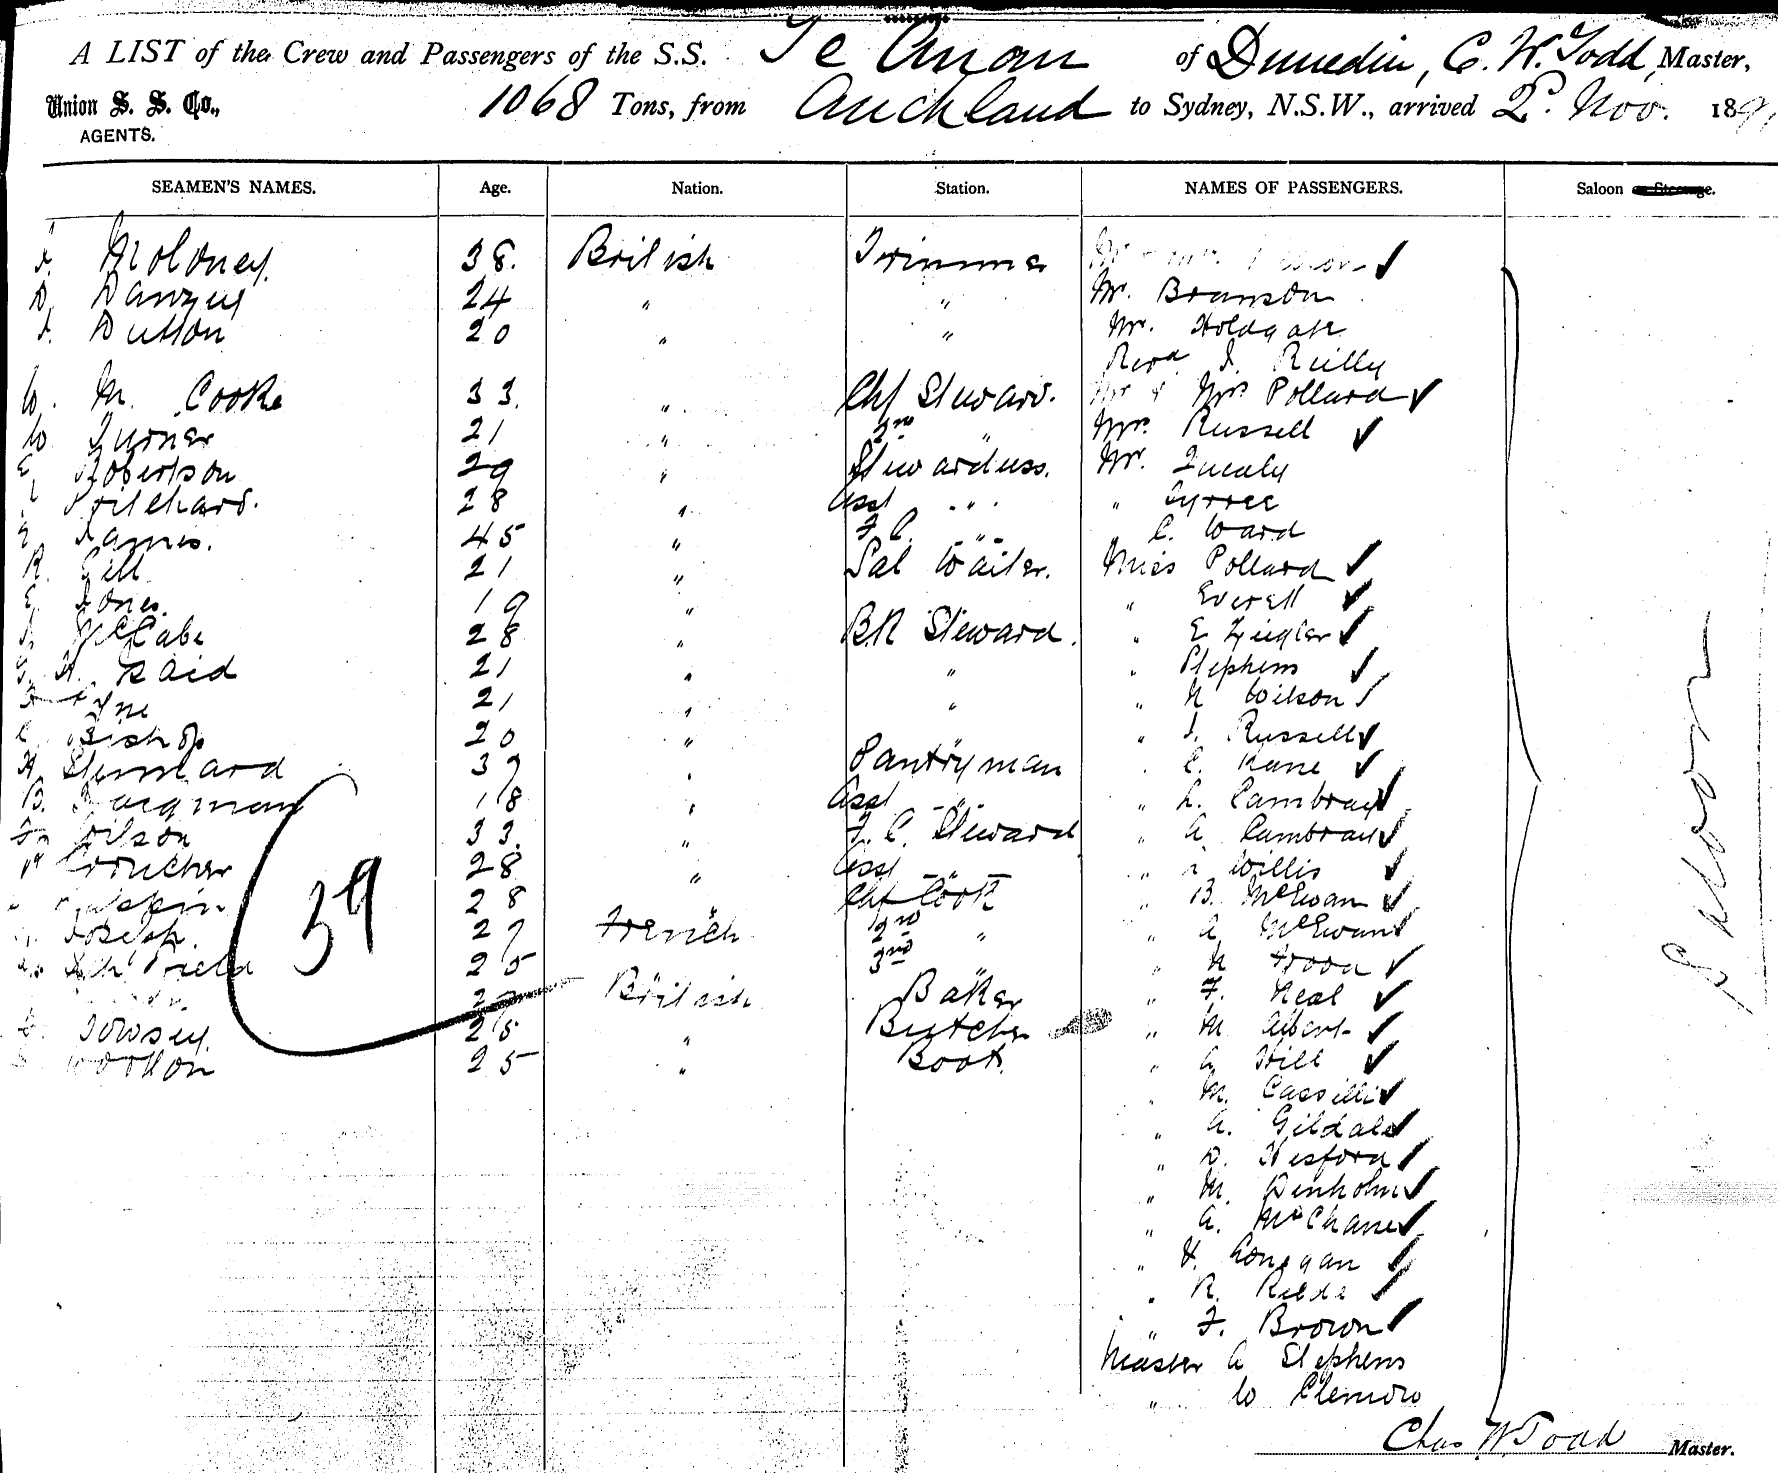 A LIST of the Crew and Passengers of the S.S. Te Anau of Dunedin, C. W. Todd, Master,
Union S. S. Co., 1068 Tons, from Auckland to Sydney, N.S.W., arrived 2d. Nov. 189
AGENTS.
SEAMEN'S NAMES. Age. Nation. Station. NAMES OF PASSENGERS. Saloon
Moloney. 38. British Trimmer ✓
D. 24 " " Mr. Branson
Dutton 20 " " Mr. Holdgate
Revd J. Reilly
W. M. Cooke 33. " Chf Steward. Mr & Mrs Pollard ✓
W Turner 21 " 2nd " Mrs. Russell ✓
E Robertson 29 " Stewardess. Mr.
Pritchard. 28 " Asst " " Tyrree
E James. 45 " F. C. " C. Ward
R. Gill 21 " Sal Waiter. Miss Pollard ✓
E Jones. 19 " " Everett ✓
McCabe 28 " BR Steward. " E Ziegler ✓
G. H. Raid 21 " " " Stephens ✓
Tyne 21 " " " N Wilson ✓
C Bishop 20 " " J. Russell ✓
H 37 " Pantryman " C. Kane ✓
B. 18 " Asst " " L. Cambray ✓
Wilson 33. " F. C. Steward " A Cambray ✓
Croucher 28 " Asst " " Willis ✓
28 " Chf Cook " B. McEwan ✓
Joseph. 27 French 2nd " " A McEwan ✓
25 3rd " N Troon ✓
British Baker " F. Neal ✓
Towsey. 26 " Butcher " M. Albert ✓
Wootton 25 " Boots. " A Hill ✓
" M. Cassilli ✓
" A. Gildale ✓
" D. Hesford ✓
" M. Denholm ✓
" A. McChane ✓
" H. Conegan ✓
" R. ✓
" F. Brown ✓
Master A Stephens
" W Clemow
39
Saloon
Chas W Todd Master.